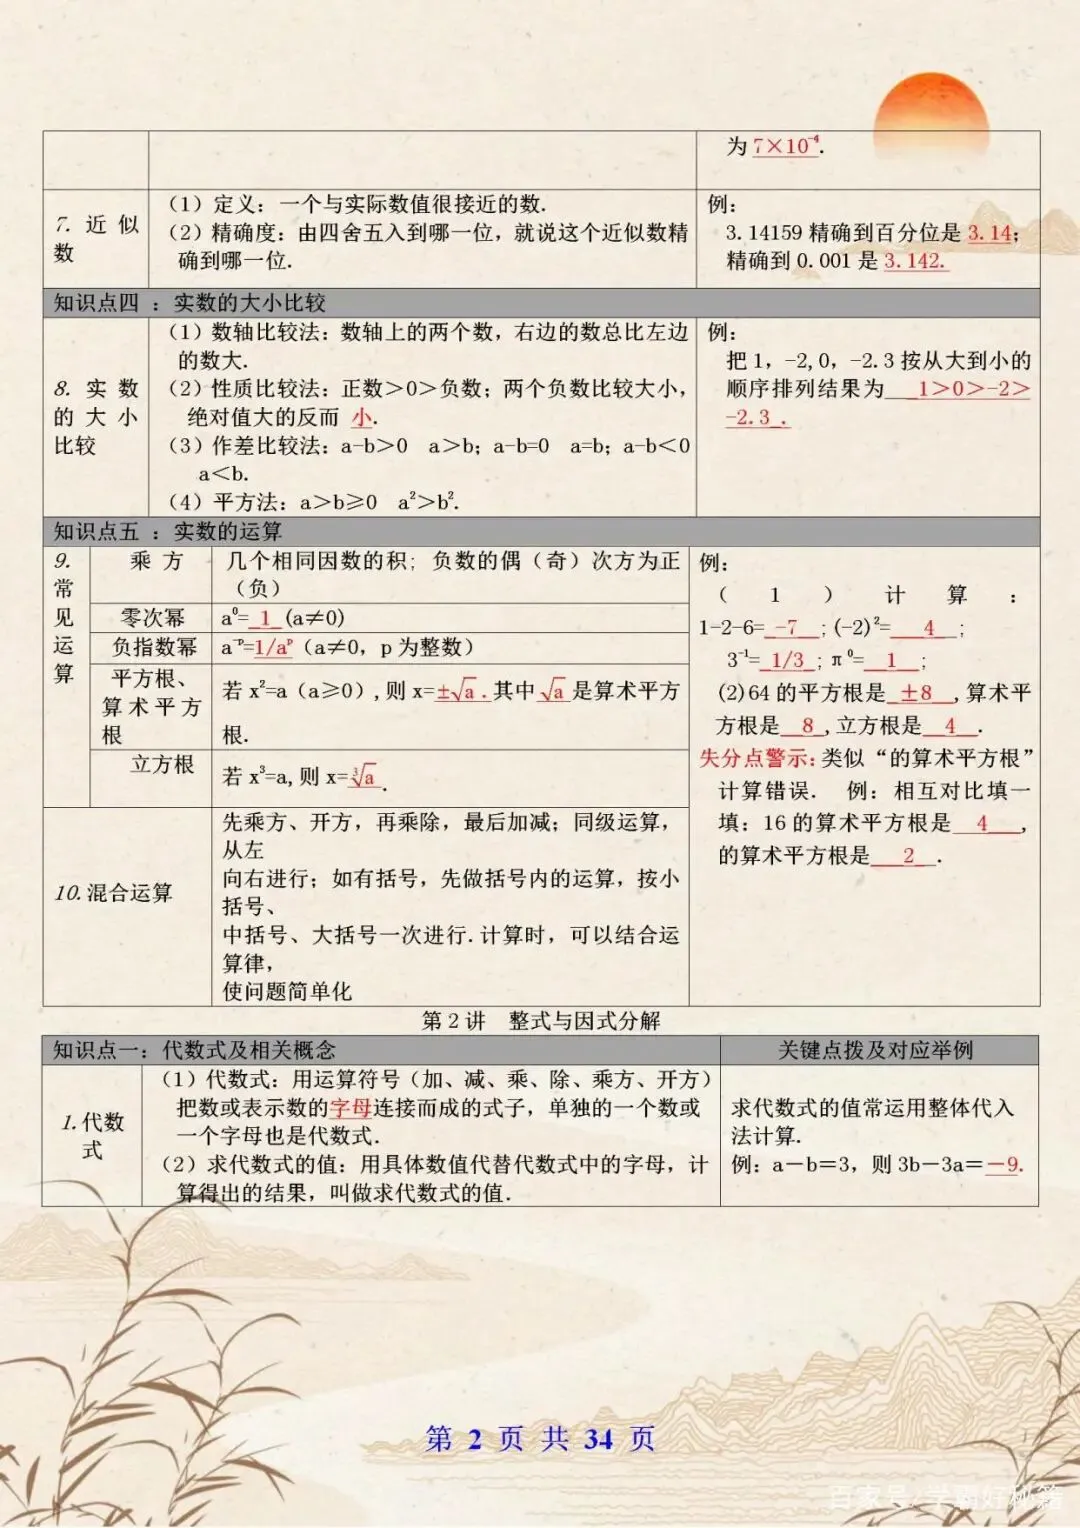 为 7×10⁻⁴.
7. 近似数
(1) 定义：一个与实际数值很接近的数.
(2) 精确度：由四舍五入到哪一位，就说这个近似数精
确到哪一位.
例：
3.14159 精确到百分位是 3.14；
精确到 0.001 是 3.142.
知识点四 ：实数的大小比较
8. 实数
的大小
比较
(1) 数轴比较法：数轴上的两个数，右边的数总比左边
的数大.
(2) 性质比较法：正数＞0＞负数；两个负数比较大小，
绝对值大的反而 小.
(3) 作差比较法：a-b＞0 a＞b；a-b=0 a=b；a-b＜0
a＜b.
(4) 平方法：a＞b≥0 a²＞b².
例：
把 1，-2,0，-2.3 按从大到小的
顺序排列结果为 1＞0＞-2＞
-2.3 .
知识点五 ：实数的运算
9.
常
见
运
算
乘 方
几个相同因数的积; 负数的偶（奇）次方为正
（负）
零次幂
a⁰= 1 (a≠0)
负指数幂
a⁻ᵖ=1/aᵖ（a≠0，p 为整数）
平方根、
算术平方
根
若 x²=a（a≥0）,则 x=±√a .其中 √a 是算术平方
根.
立方根
若 x³=a,则 x=∛a .
10.混合运算
先乘方、开方，再乘除，最后加减；同级运算，
从左
向右进行；如有括号，先做括号内的运算，按小
括号、
中括号、大括号一次进行.计算时，可以结合运
算律，
使问题简单化
例：
（1）计算：
1-2-6= -7 ;(-2)²= 4 ;
3⁻¹= 1/3 ;π⁰= 1 ;
(2)64 的平方根是 ±8 ,算术平
方根是 8 ,立方根是 4 .
失分点警示：类似“的算术平方根”
计算错误. 例：相互对比填一
填：16 的算术平方根是 4 ,
的算术平方根是 2 .
第 2 讲 整式与因式分解
知识点一：代数式及相关概念
关键点拨及对应举例
1.代数
式
(1) 代数式：用运算符号（加、减、乘、除、乘方、开方）
把数或表示数的字母连接而成的式子，单独的一个数或
一个字母也是代数式.
(2) 求代数式的值：用具体数值代替代数式中的字母，计
算得出的结果，叫做求代数式的值.
求代数式的值常运用整体代入
法计算.
例：a－b＝3，则 3b－3a＝－9.
第 2 页 共 34 页
百家号/学霸好秘籍